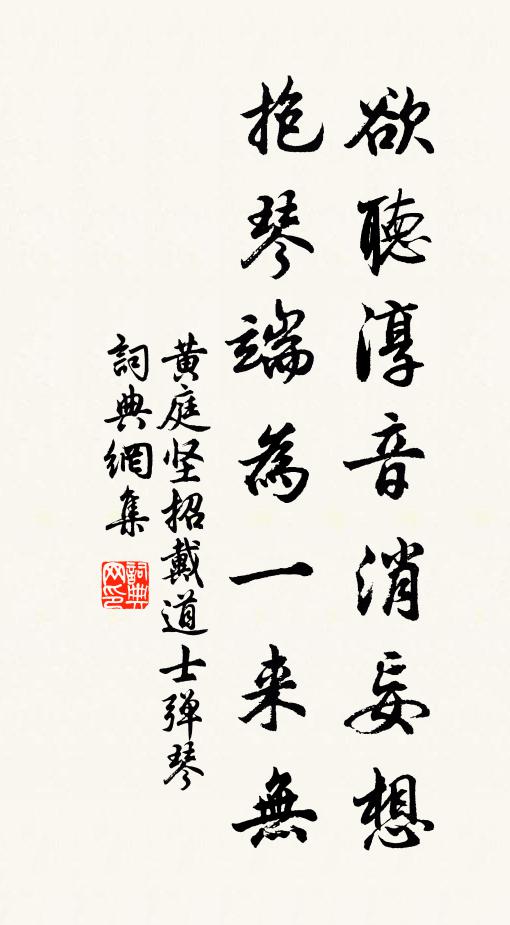 欲聽淳音消妄想
抱琴端為一来無
黄庭坚招戴道士弹琴
詞典網集
詞典网印